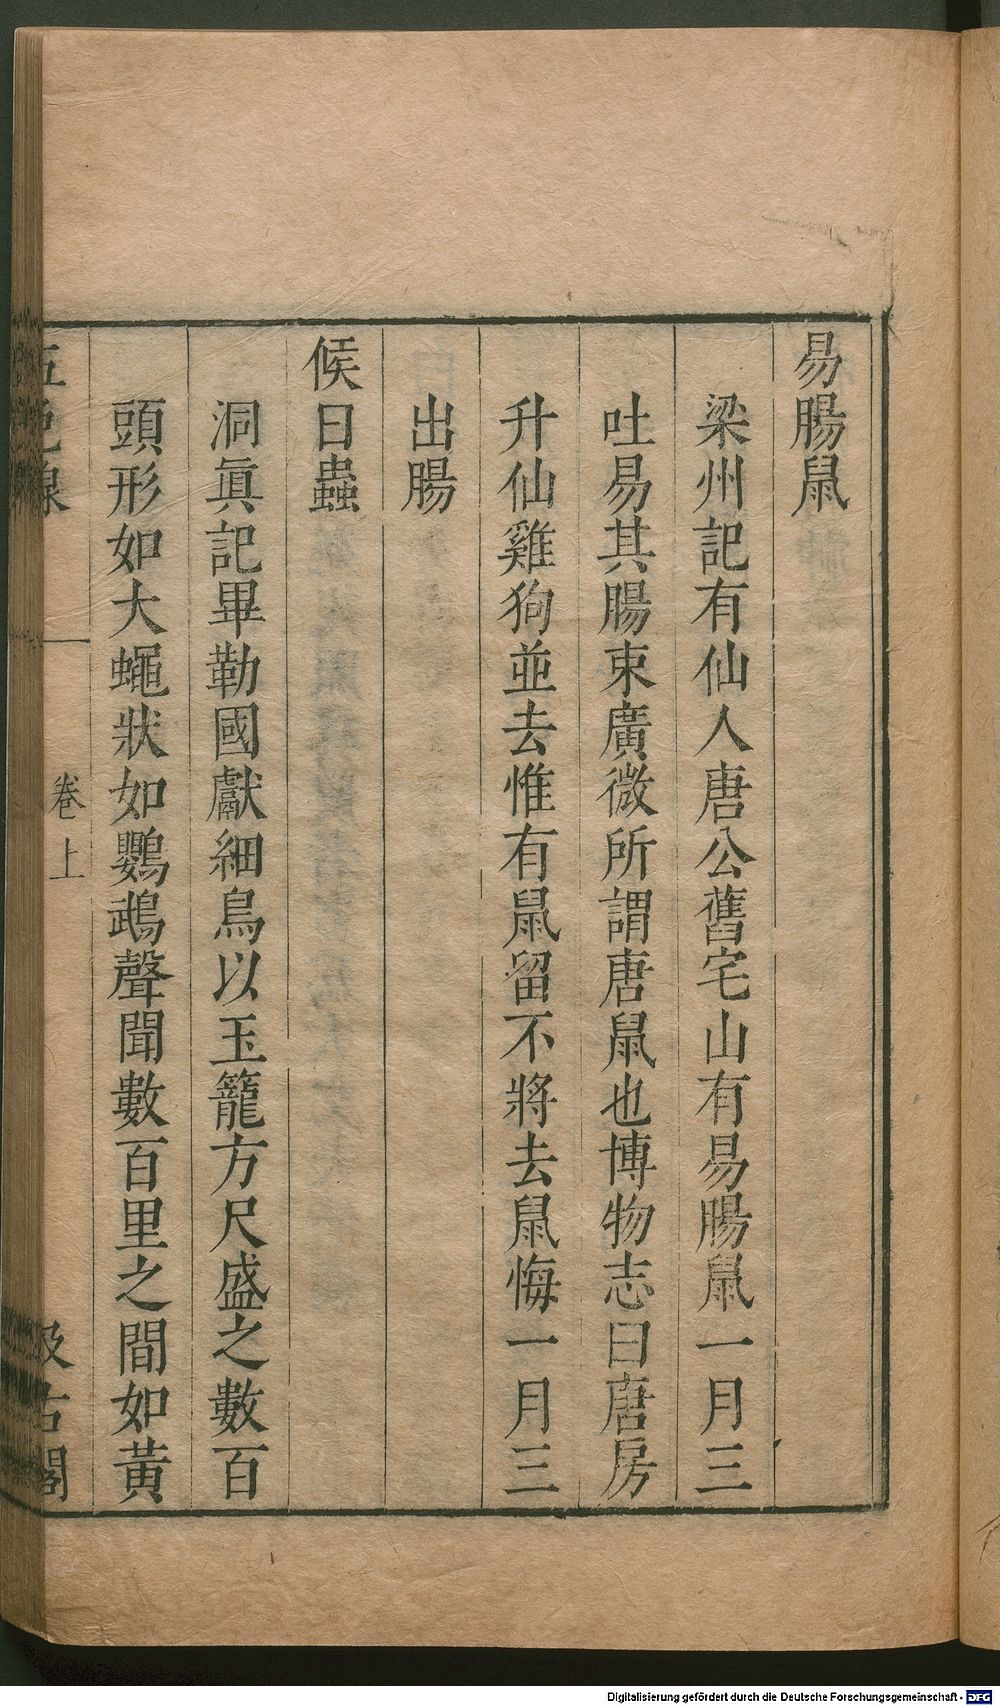 易腸鼠
梁州記有仙人唐公舊宅山有易腸鼠一月三
吐易其腸束廣微所謂唐鼠也博物志曰唐房
升仙雞狗並去惟有鼠留不將去鼠悔一月三
出腸
候日蟲
洞眞記畢勒國獻細鳥以玉籠方尺盛之數百
頭形如大蠅狀如鸚鵡聲聞數百里之間如黃
五色線 卷上 汲古閣
Digitalisierung gefördert durch die Deutsche Forschungsgemeinschaft - DFG